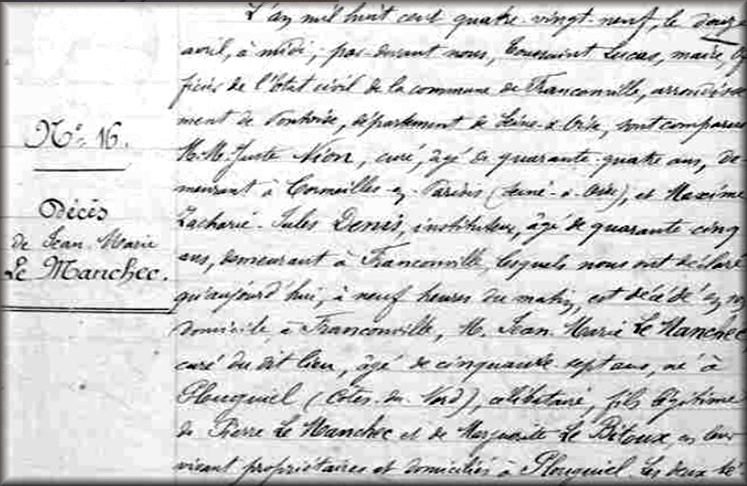 N° 16.
Décès
de Jean Marie
Le Manchec.
L'an mil huit cent quatre-vingt-neuf, le douze
avril, à midi, par-devant nous, Toussaint Lucas, maire, of
ficier de l'état civil de la commune de Franconville, arrondisse
ment de Pontoise, département de Seine-&-Oise, sont comparus
M.M. Juste Nion, curé, âgé de quarante-quatre ans, de
meurant à Cormeilles-en-Parisis (Seine-&-Oise), et Maxime
Zacharie-Jules Denis, instituteur, âgé de quarante cinq
ans, demeurant à Franconville, lesquels nous ont déclaré
qu'aujourd'hui, à neuf heures du matin, est décédé en son
domicile à Franconville, M. Jean Marie Le Manchec
curé du dit lieu, âgé de cinquante-sept ans, né à
Plouguiel (Côtes-du-Nord), célibataire, fils légitime
de Pierre Le Manchec et de Marguerite Le Bitoux en leur
vivant propriétaires et domiciliés à Plouguiel. Les deux té